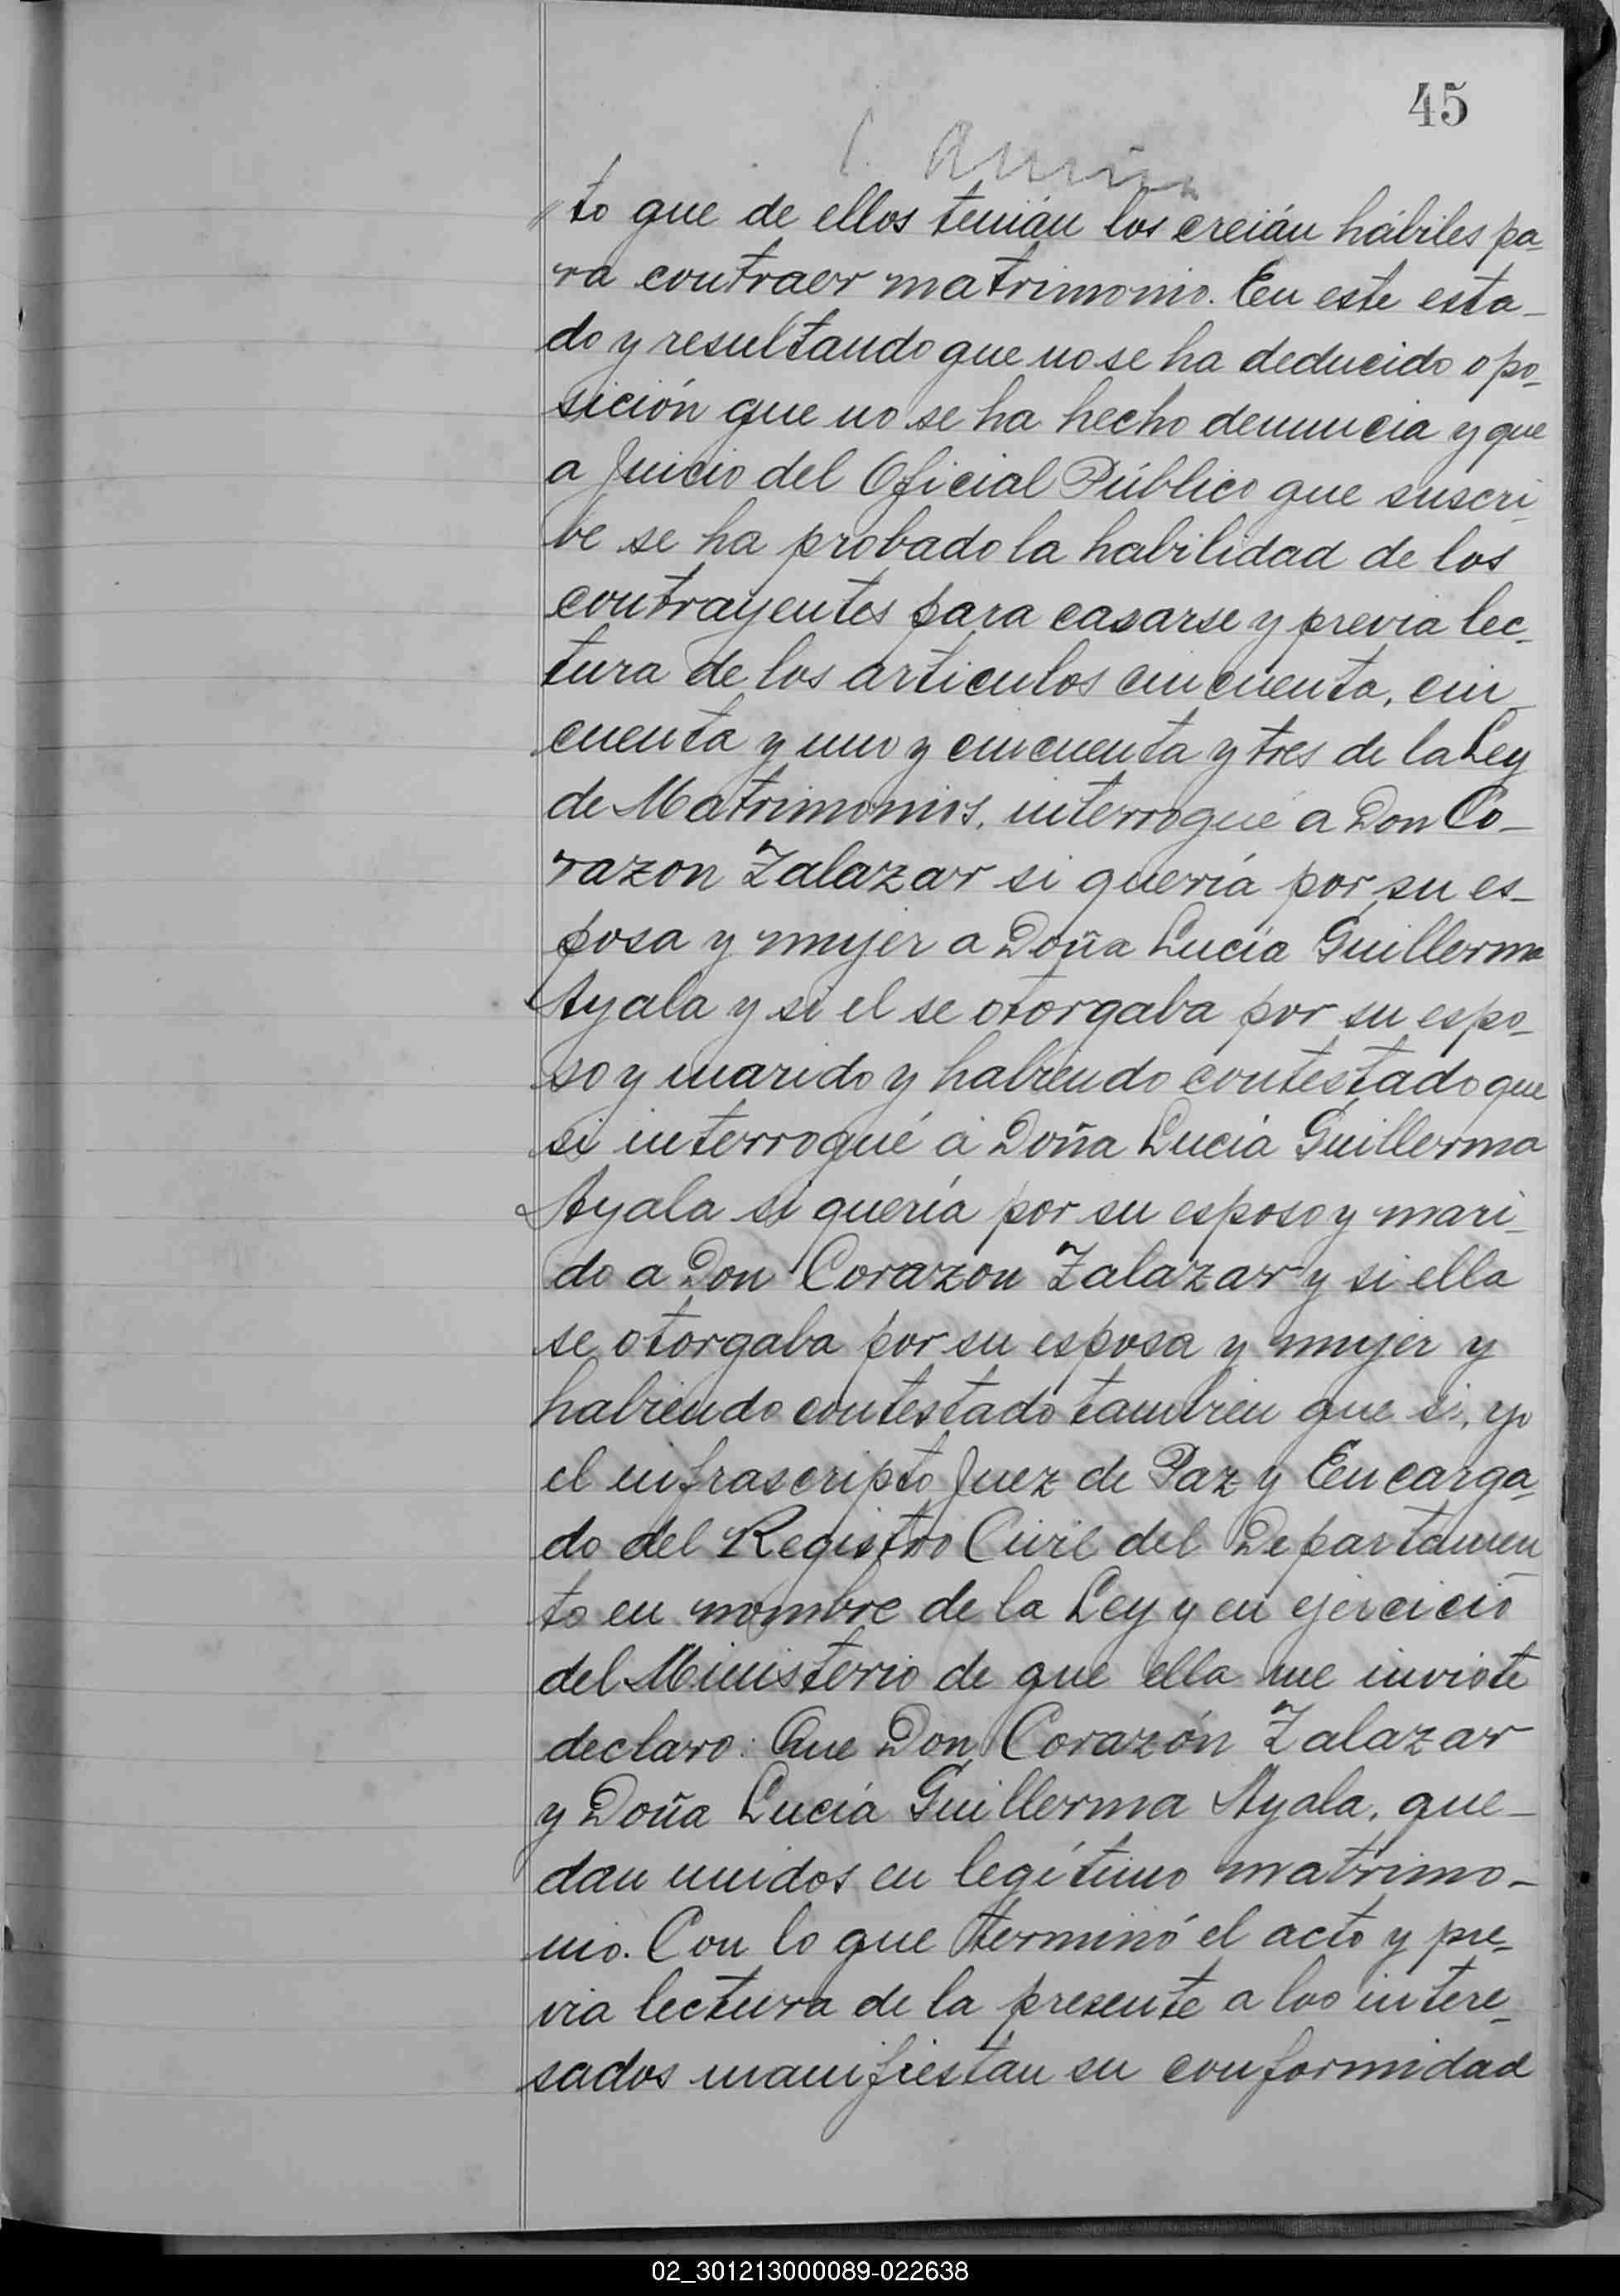 45
to que de ellos tenián los creián hábiles pa-
ra contraer matrimonio. En este esta-
do y resultando que no se ha deducido opo-
sición que no se ha hecho denuncia y que
a Juicio del Oficial Público que suscri-
be se ha probado la habilidad de los
contrayentes para casarse y previa lec-
tura de los articulos cincuenta, cin-
cuenta y uno y cincuenta y tres de la Ley
de Matrimonios, interrogué a Don Co-
razon Zalazar si quería por su es-
posa y mujer a Doña Lucía Guillerma
Ayala y si el se otorgaba por su espo-
so y marido y habiendo contestado que
si interrogué á Doña Lucía Guillerma
Ayala si quería por su esposo y mari-
do a Don Corazon Zalazar y si ella
se otorgaba por su esposa y mujer y
habiendo contestado tambien que si, yo
el infrascripto Juez de Paz y Encarga-
do del Registro Civil del Departamen-
to en nombre de la Ley y en ejercicio
del Ministerio de que ella me inviste
declaro: Que Don Corazón Zalazar
y Doña Lucía Guillerma Ayala, que-
dan unidos en legítimo matrimo-
nio. Con lo que terminó el acto y pre-
via lectura de la presente a los intere-
sados manifiestan su conformidad
02_301213000089-022638